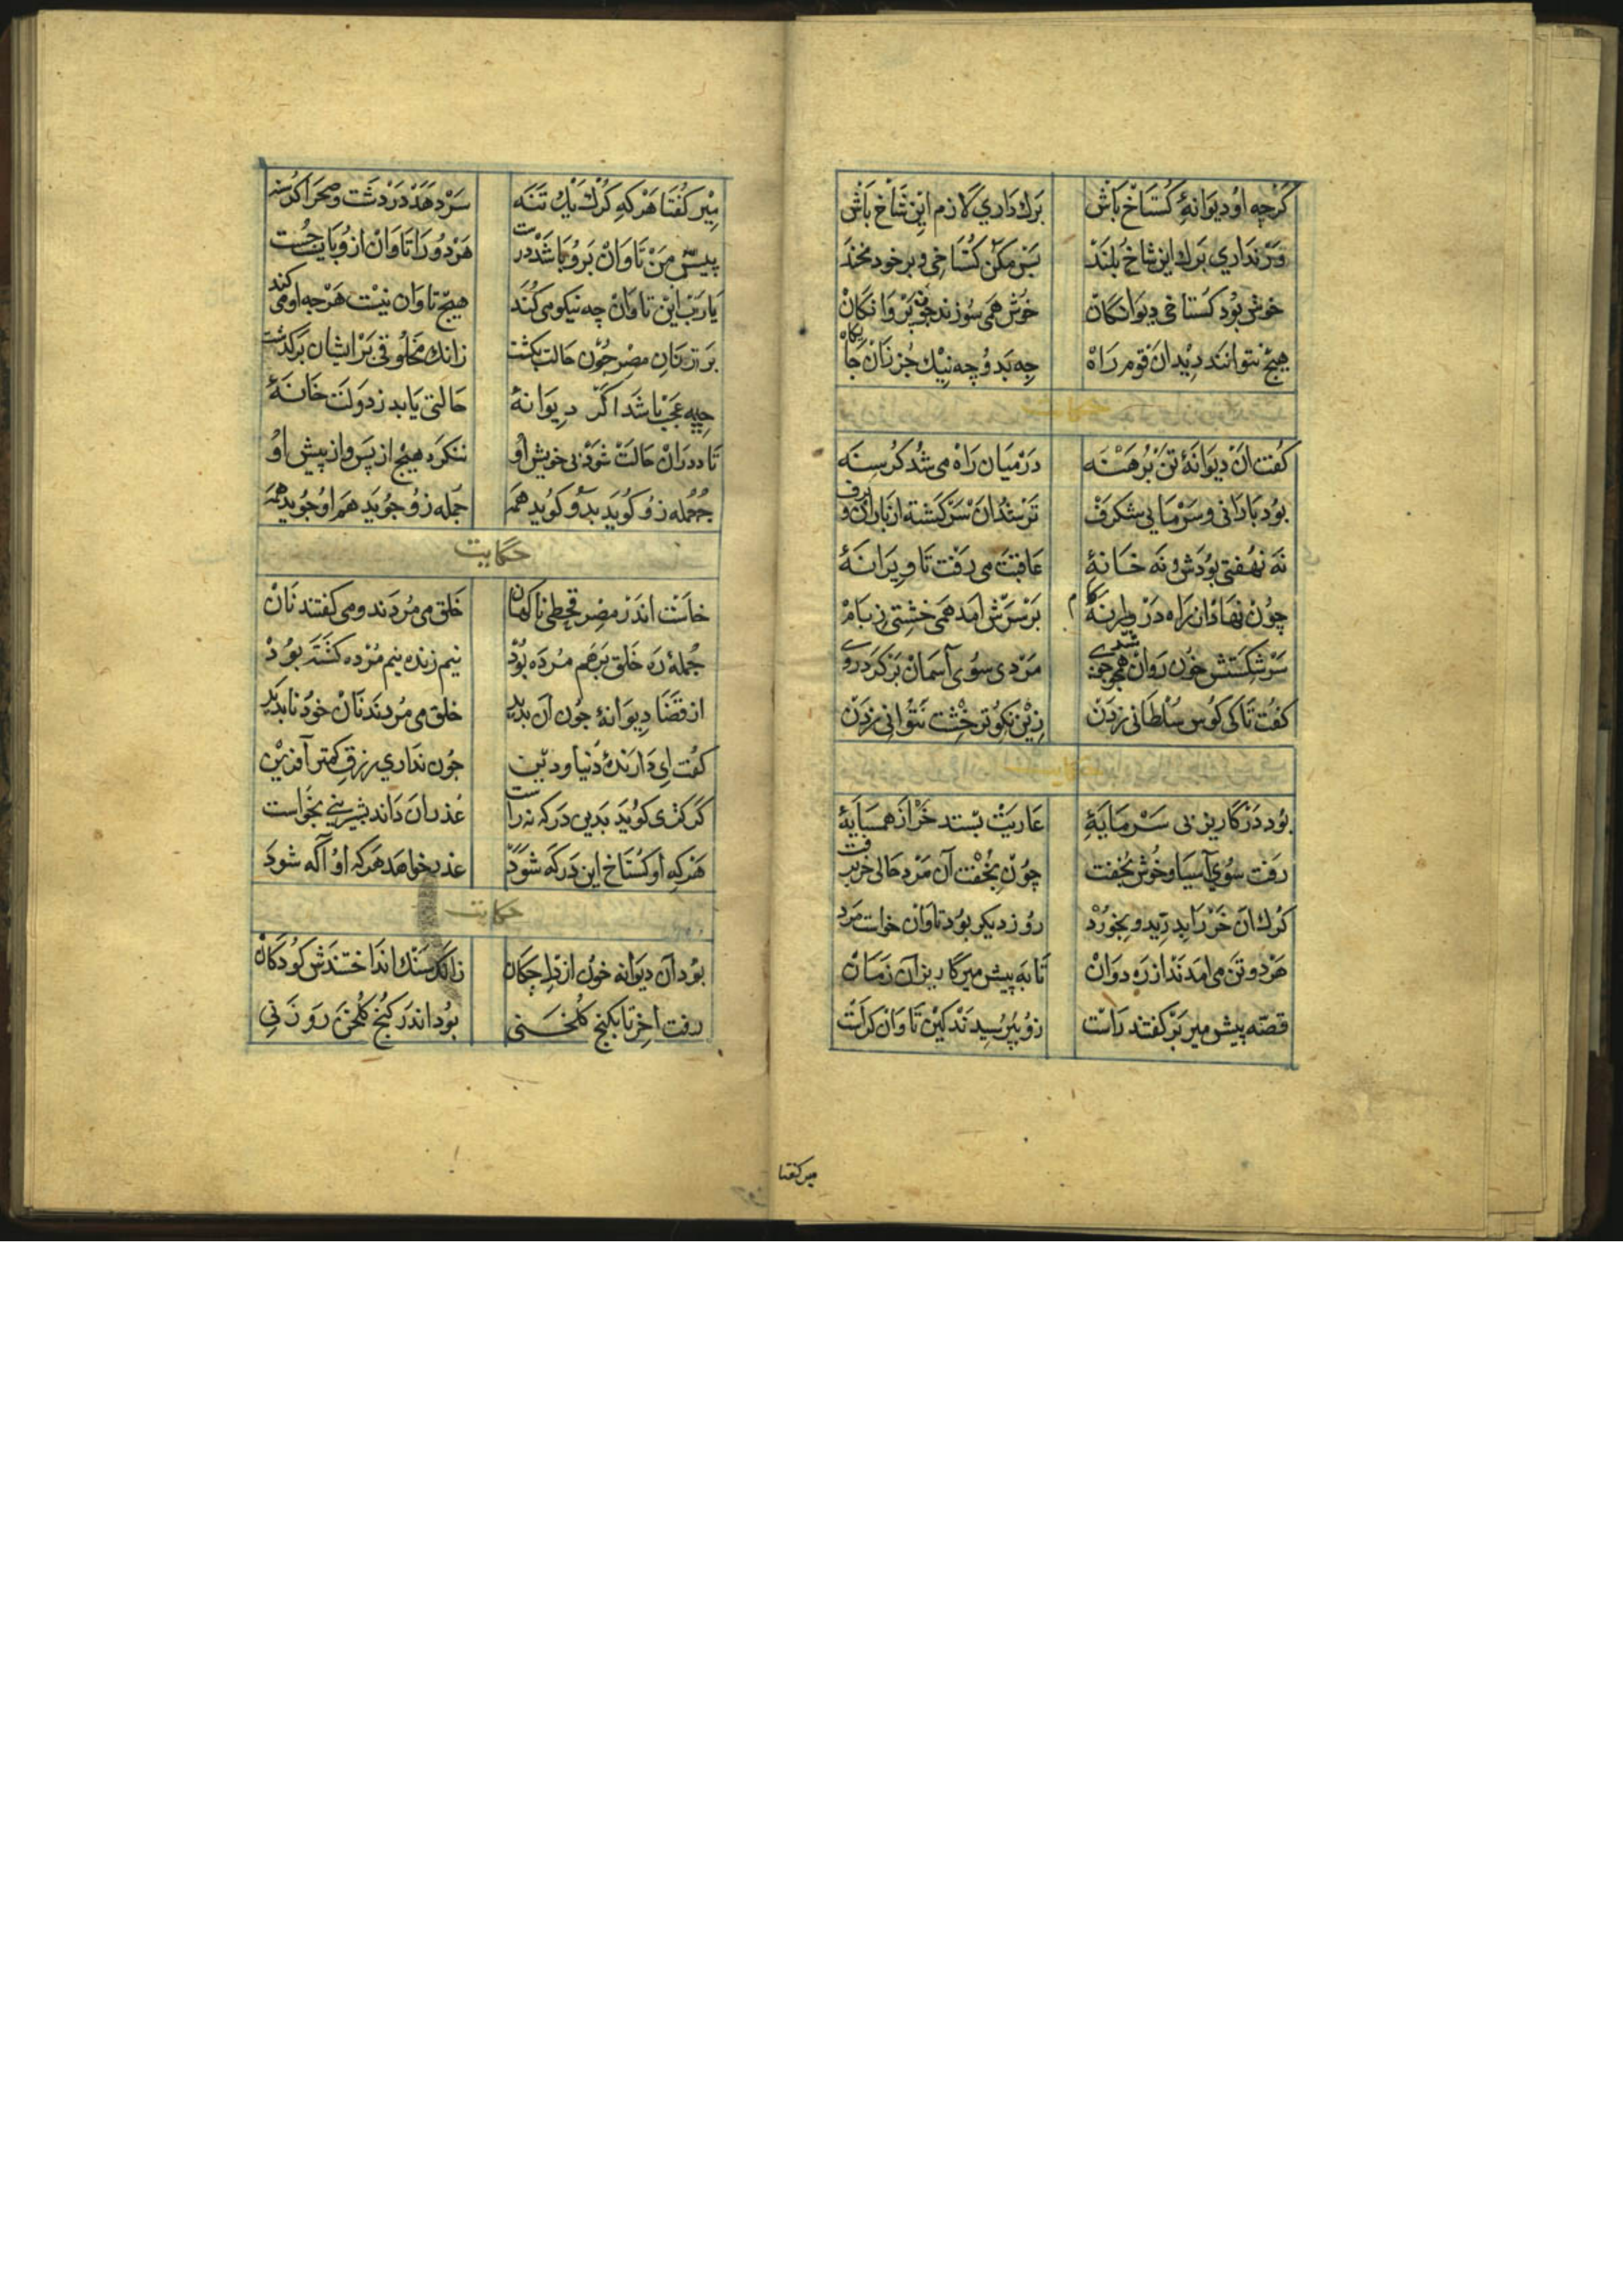 کرچه او دیوانهٔ کستاخ باش برك داری لازم این شاخ باش
ور نداری برك این شاخ بلند پس مکن کستاخی و بر خود بخند
خوش بود کستاخی دیوانکان خوش همی سوزند چون پروانکان
هیچ نتوانند دید ان قوم راه چه بد و چه نیك جز زان جایکاه
کفت ان دیوانهٔ تن برهنه در میان راه می شد کرسنه
بود بارانی و سرمایی شکرف تر شد ان سرکشته از باران و برف
نه نهفتی بودش و نه خانهٔ عاقبت می رفت تا ویرانهٔ
چون نهاد از راه در ویرانه کام بر سرش امد همی خشتی ز بام
سر شکستش خون روان شد همچو جوی مرد سوی آسمان بر کرد روی
کفت تا کی کوس سلطانی زدن زین نکوتر خشت نتوانی زدن
بود در کاریز بی سرمایهٔ عاریت بستد خر از همسایهٔ
رفت سوی آسیا و خوش بخفت چون بخفت آن مرد حالی خر برفت
کرك ان خر را بدرید و بخورد روز دیکر بود تاوان خواست مرد
هر دو تن می امدند از ره دوان تا به پیش میر کاریز آن زمان
قصه پیش میر بر کفتند راست زو بپرسیدند کین تاوان کراست
میر کفتا
میر کفتا هر که کرك یك تنه سر دهد در دشت و صحرا کرسنه
پیش من تاوان برو باشد درست هر دو را تاوان ازو باید جست
یا رب این تاوان چه نیکو می کند هیچ تاوان نیست هرچه او می کند
بر زنان مصر چون حالت بکشت زانك مخلوقی بر ایشان برکذشت
چه عجب باشد اکر دیوانهٔ حالتی یابد ز دولت خانهٔ
تا در ان حالت شود بی خویش او ننکرد هیچ از پس و از پیش او
جمله زو کوید بدو کوید همه جمله زو جوید هم او جوید همه
حکایت
خاست اندر مصر قحطی ناکهان خلق می مردند و می کفتند نان
جملهٔ ره خلق بر هم مرده بود نیم زنده نیم مرده کشته بود
از قضا دیوانهٔ چون آن بدید خلق می مردند نان خود ناپدید
کفت ای دارندهٔ دنیا و دین چون نداری رزق کمتر آفرین
کر کژی کوید بدین درکه نه راست عذر ان داند بشیرینی بخواست
هر که او کستاخ این درکه شود عذر خواهد هرکه او آکه شود
حکایت
بود آن دیوانه خون از دل چکان زانکه سنك انداختندش کودکان
رفت اخر تا بکنج کلخنی بود اندر کنج کلخن روزنی